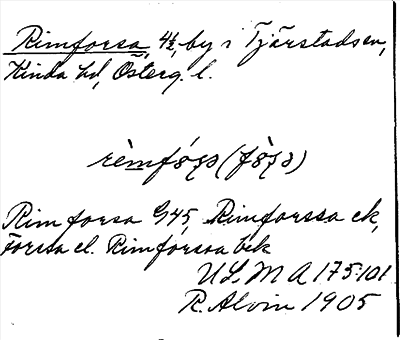 Rimforsa, 4½, by i Tjärstads sn,
Kinda hd, Österg. l.
rèmfǿʂa (fòʂa)
Rimforsa G45, Rimforssa ek,
Forssa el. Rimforssa bek
ULMA 175:101
R. Alvin 1905